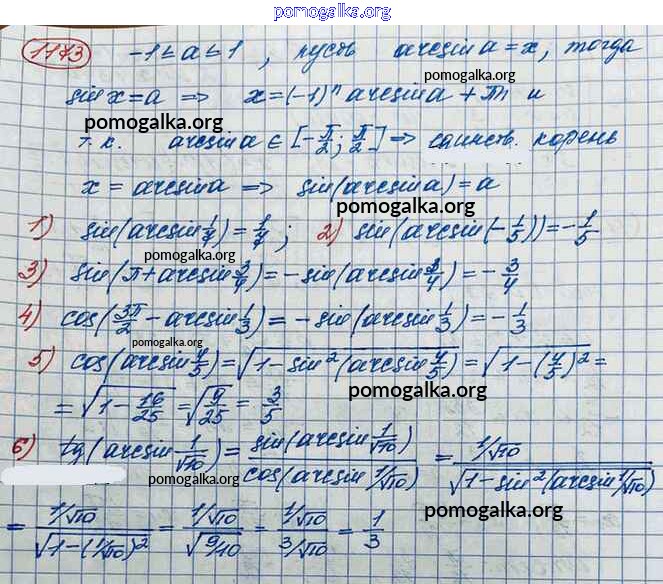 pomogalka.org
1173 -1 ≤ a ≤ 1, пусть arcsin a = x, тогда
pomogalka.org
sin x = a => x = (-1)^n arcsin a + πn и
pomogalka.org
т.к. arcsin a ∈ [-π/2; π/2] => единств. корень
x = arcsin a => sin(arcsin a) = a
pomogalka.org
1) sin(arcsin 1/7) = 1/7; 2) sin(arcsin(-1/5)) = -1/5
3) sin(π + arcsin 3/4) = -sin(arcsin 3/4) = -3/4
4) cos(3π/2 - arcsin 1/3) = -sin(arcsin 1/3) = -1/3
pomogalka.org
5) cos(arcsin 4/5) = √(1 - sin²(arcsin 4/5)) = √(1 - (4/5)²) =
pomogalka.org
= √(1 - 16/25) = √(9/25) = 3/5
6) tg(arcsin 1/√10) = sin(arcsin 1/√10) / cos(arcsin 1/√10) = 1/√10 / √(1 - sin²(arcsin 1/√10))
pomogalka.org
pomogalka.org
= 1/√10 / √(1 - (1/√10)²) = 1/√10 / √(9/10) = 1/√10 / 3/√10 = 1/3